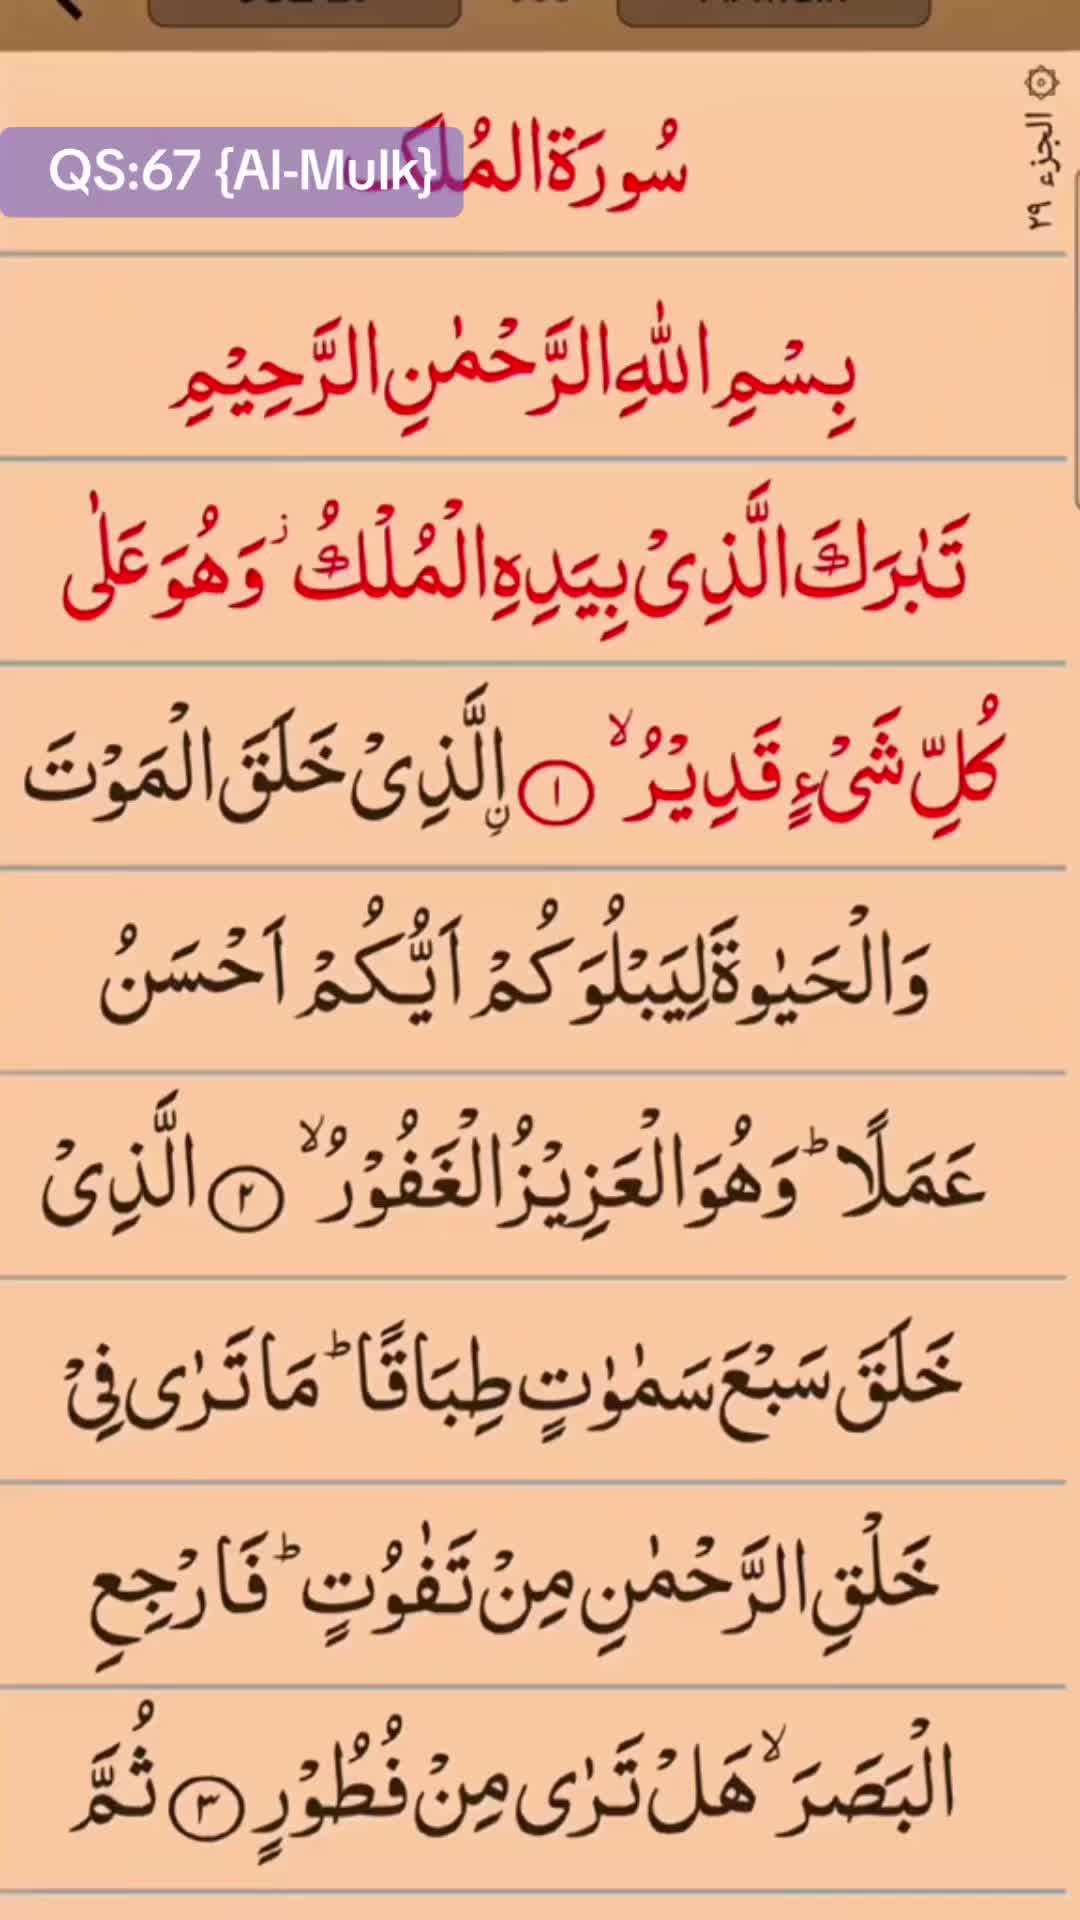 الجزء ٢٩
سُورَةُ الْمُلْكِ
QS:67 {Al-Mulk}
بِسْمِ اللّٰهِ الرَّحْمٰنِ الرَّحِيْمِ
تَبٰرَكَ الَّذِىْ بِيَدِهِ الْمُلْكُ ز وَهُوَ عَلٰى
كُلِّ شَىْءٍ قَدِيْرُ ۙ ١ اۨلَّذِىْ خَلَقَ الْمَوْتَ
وَالْحَيٰوةَ لِيَبْلُوَكُمْ اَيُّكُمْ اَحْسَنُ
عَمَلًا ؕ وَهُوَ الْعَزِيْزُ الْغَفُوْرُ ۙ ٢ الَّذِىْ
خَلَقَ سَبْعَ سَمٰوٰتٍ طِبَاقًا ؕ مَا تَرٰى فِىْ
خَلْقِ الرَّحْمٰنِ مِنْ تَفٰوُتٍ ؕ فَارْجِعِ
الْبَصَرَ ۙ هَلْ تَرٰى مِنْ فُطُوْرٍ ٣ ثُمَّ